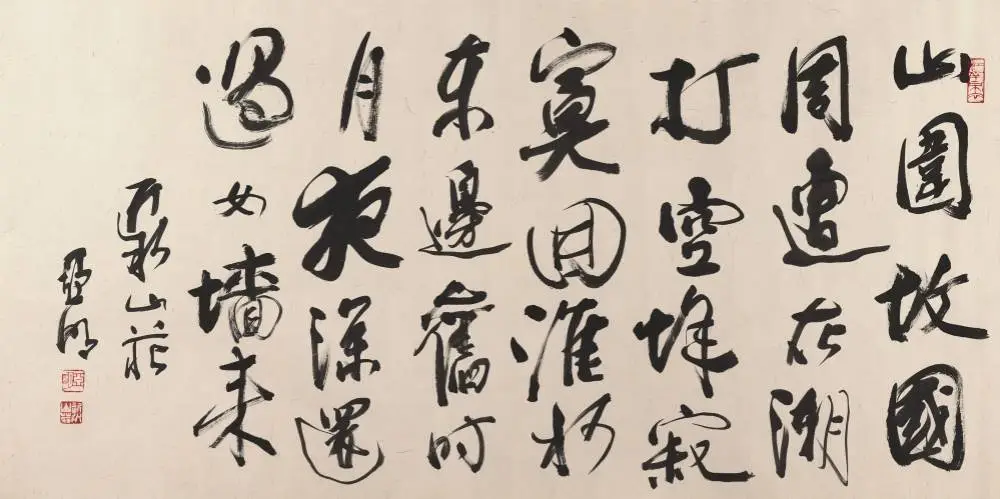 山圍故國
周遭在潮
打空城寂
寞回淮水
東邊舊时
月夜深還
過女墻来
近水山莊
亞明